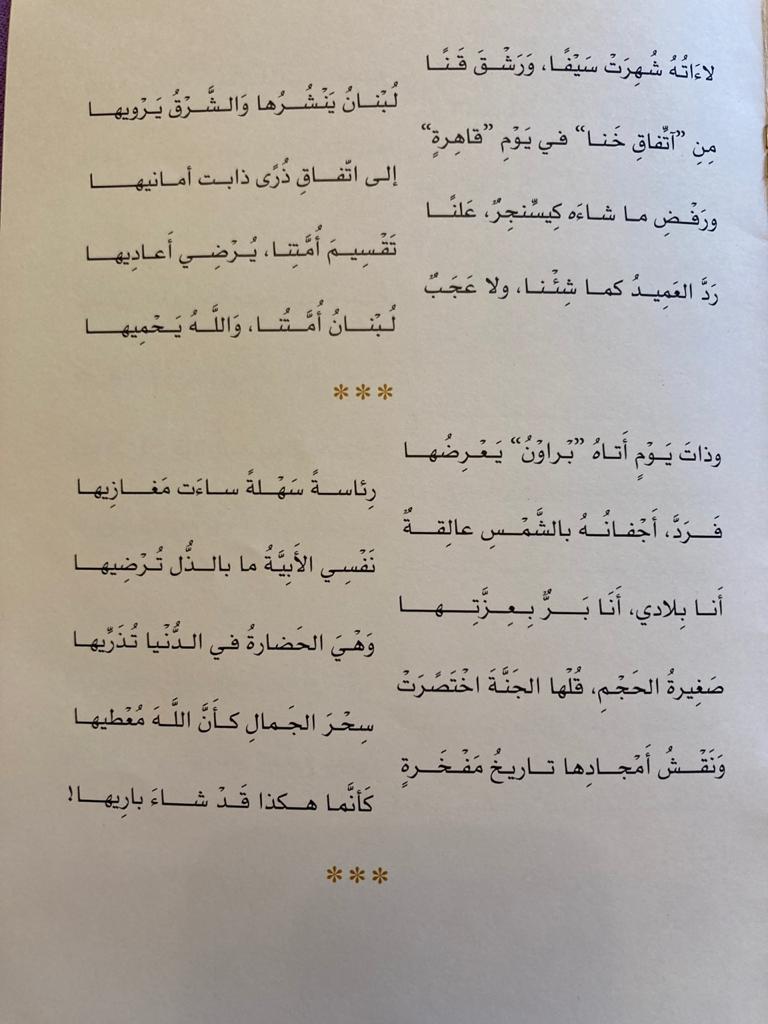 لاءَاتُهُ شُهِرَتْ سَيْفًا، وَرَشْقَ قَنًا
لُبْنانُ يَنْشُرُها وَالشَّرْقُ يَرْويها
مِنِ ”آتِّفاقِ خَنا“ في يَوْمِ ”قاهِرةٍ“
إلى اتّفاقِ ذُرًى ذابت أمانيها
ورَفْضِ ما شاءَه كِيسّنجِرٌ، عَلنًا
تَقْسِيمَ أُمَّتِنا، يُرْضِي أَعادِيها
رَدَّ العَمِيدُ كما شِئْنا، ولا عَجَبٌ
لُبْنانُ أُمَّتُنا، وَاللَّهُ يَحْمِيها
***
وذاتَ يَوْمٍ أَتاهُ ”بْراوْنُ“ يَعْرِضُها
رِئاسةً سَهْلةً ساءَت مَغازِيها
فَرَدَّ، أَجْفانُهُ بالشَّمْسِ عالِقةٌ
نَفْسِي الأَبِيَّةُ ما بالذُّل تُرْضِيها
أَنا بِلادي، أَنَا بَرٌّ بِعِزَّتِها
وَهْيَ الحَضارةُ في الدُّنْيا تُذَرِّيها
صَغِيرةُ الحَجْمِ، قُلْها الجَنَّةَ اخْتَصَرَتْ
سِحْرَ الجَمالِ كأَنَّ اللَّهَ مُعْطيها
وَنَقْشُ أَمْجادِها تاريخُ مَفْخَرةٍ
كَأنَّما هكذا قَدْ شاءَ بارِيها!
***